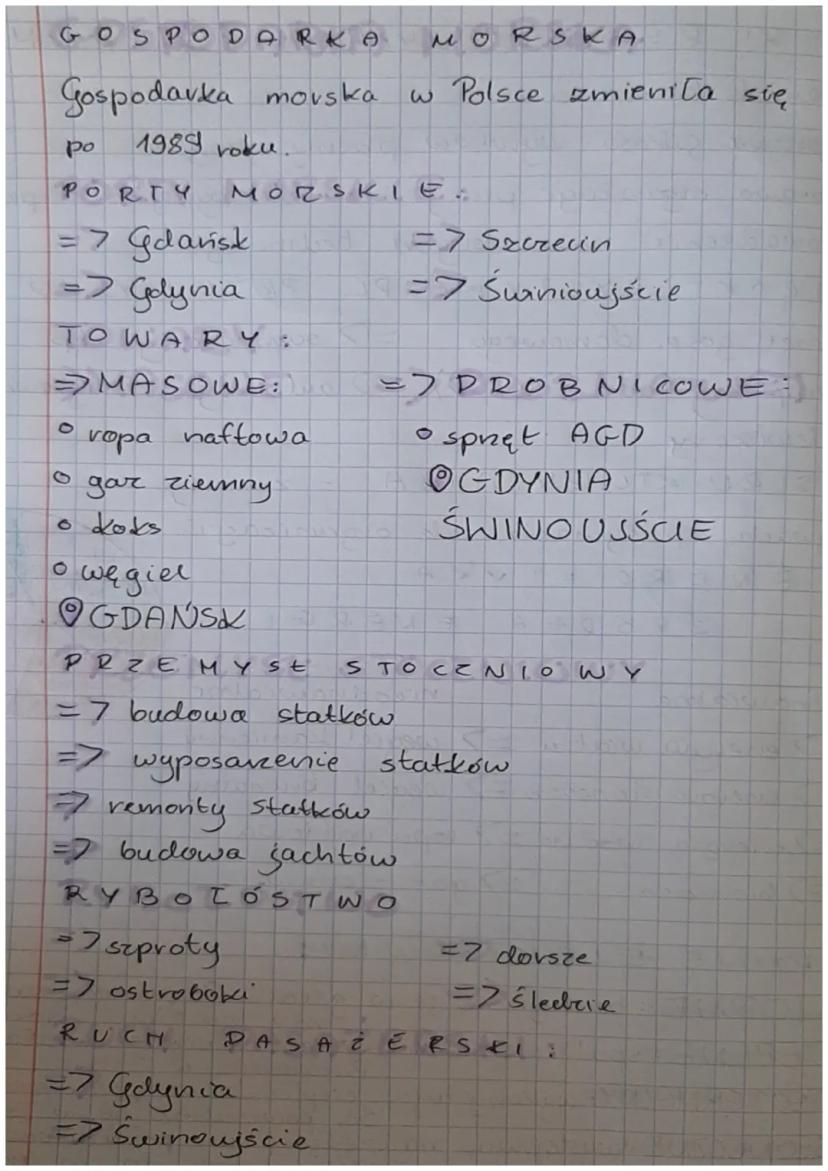 GOSPODARKA MORSKA
Gospodarka morska w Polsce zmieniła się
po 1989 roku.
PORTY MORSKIE:
=> Gdańsk => Szczecin
=> Gdynia => Świnioujście
TOWARY:
=> MASOWE: => DROBNICOWE:
○ ropa naftowa ○ sprzęt AGD
○ gaz ziemny GDYNIA
○ koks ŚWINOUJŚCIE
○ węgiel
GDAŃSK
PRZEMYSŁ STOCZNIOWY
=> budowa statków
=> wyposażenie statków
=> remonty statków
=> budowa jachtów
RYBOŁÓSTWO
=> szproty => dorsze
=> ostroboki => śledzie
RUCH PASAŻERSKI:
=> Gdynia
=> Świnoujście